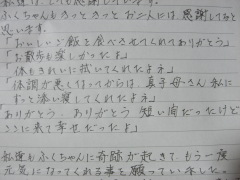 私達は、いつも感謝しています。
ふくちゃんもきっときっとお二人には、感謝してると
思います。
「おいしいご飯を食べさせてくれてありがとう」
「お散歩も楽しかったよ」
「体もきれいに拭いてくれたよネ」
「体調が悪くなってからは、 母さん 私に
ずっと添い寝してくれたよネ」
「ありがとう ありがとう 短い間だったけど
ここに来て幸せだったよ」
私達もふくちゃんに奇跡が起きて、もう一度
元気になってくれる事を願っていました。